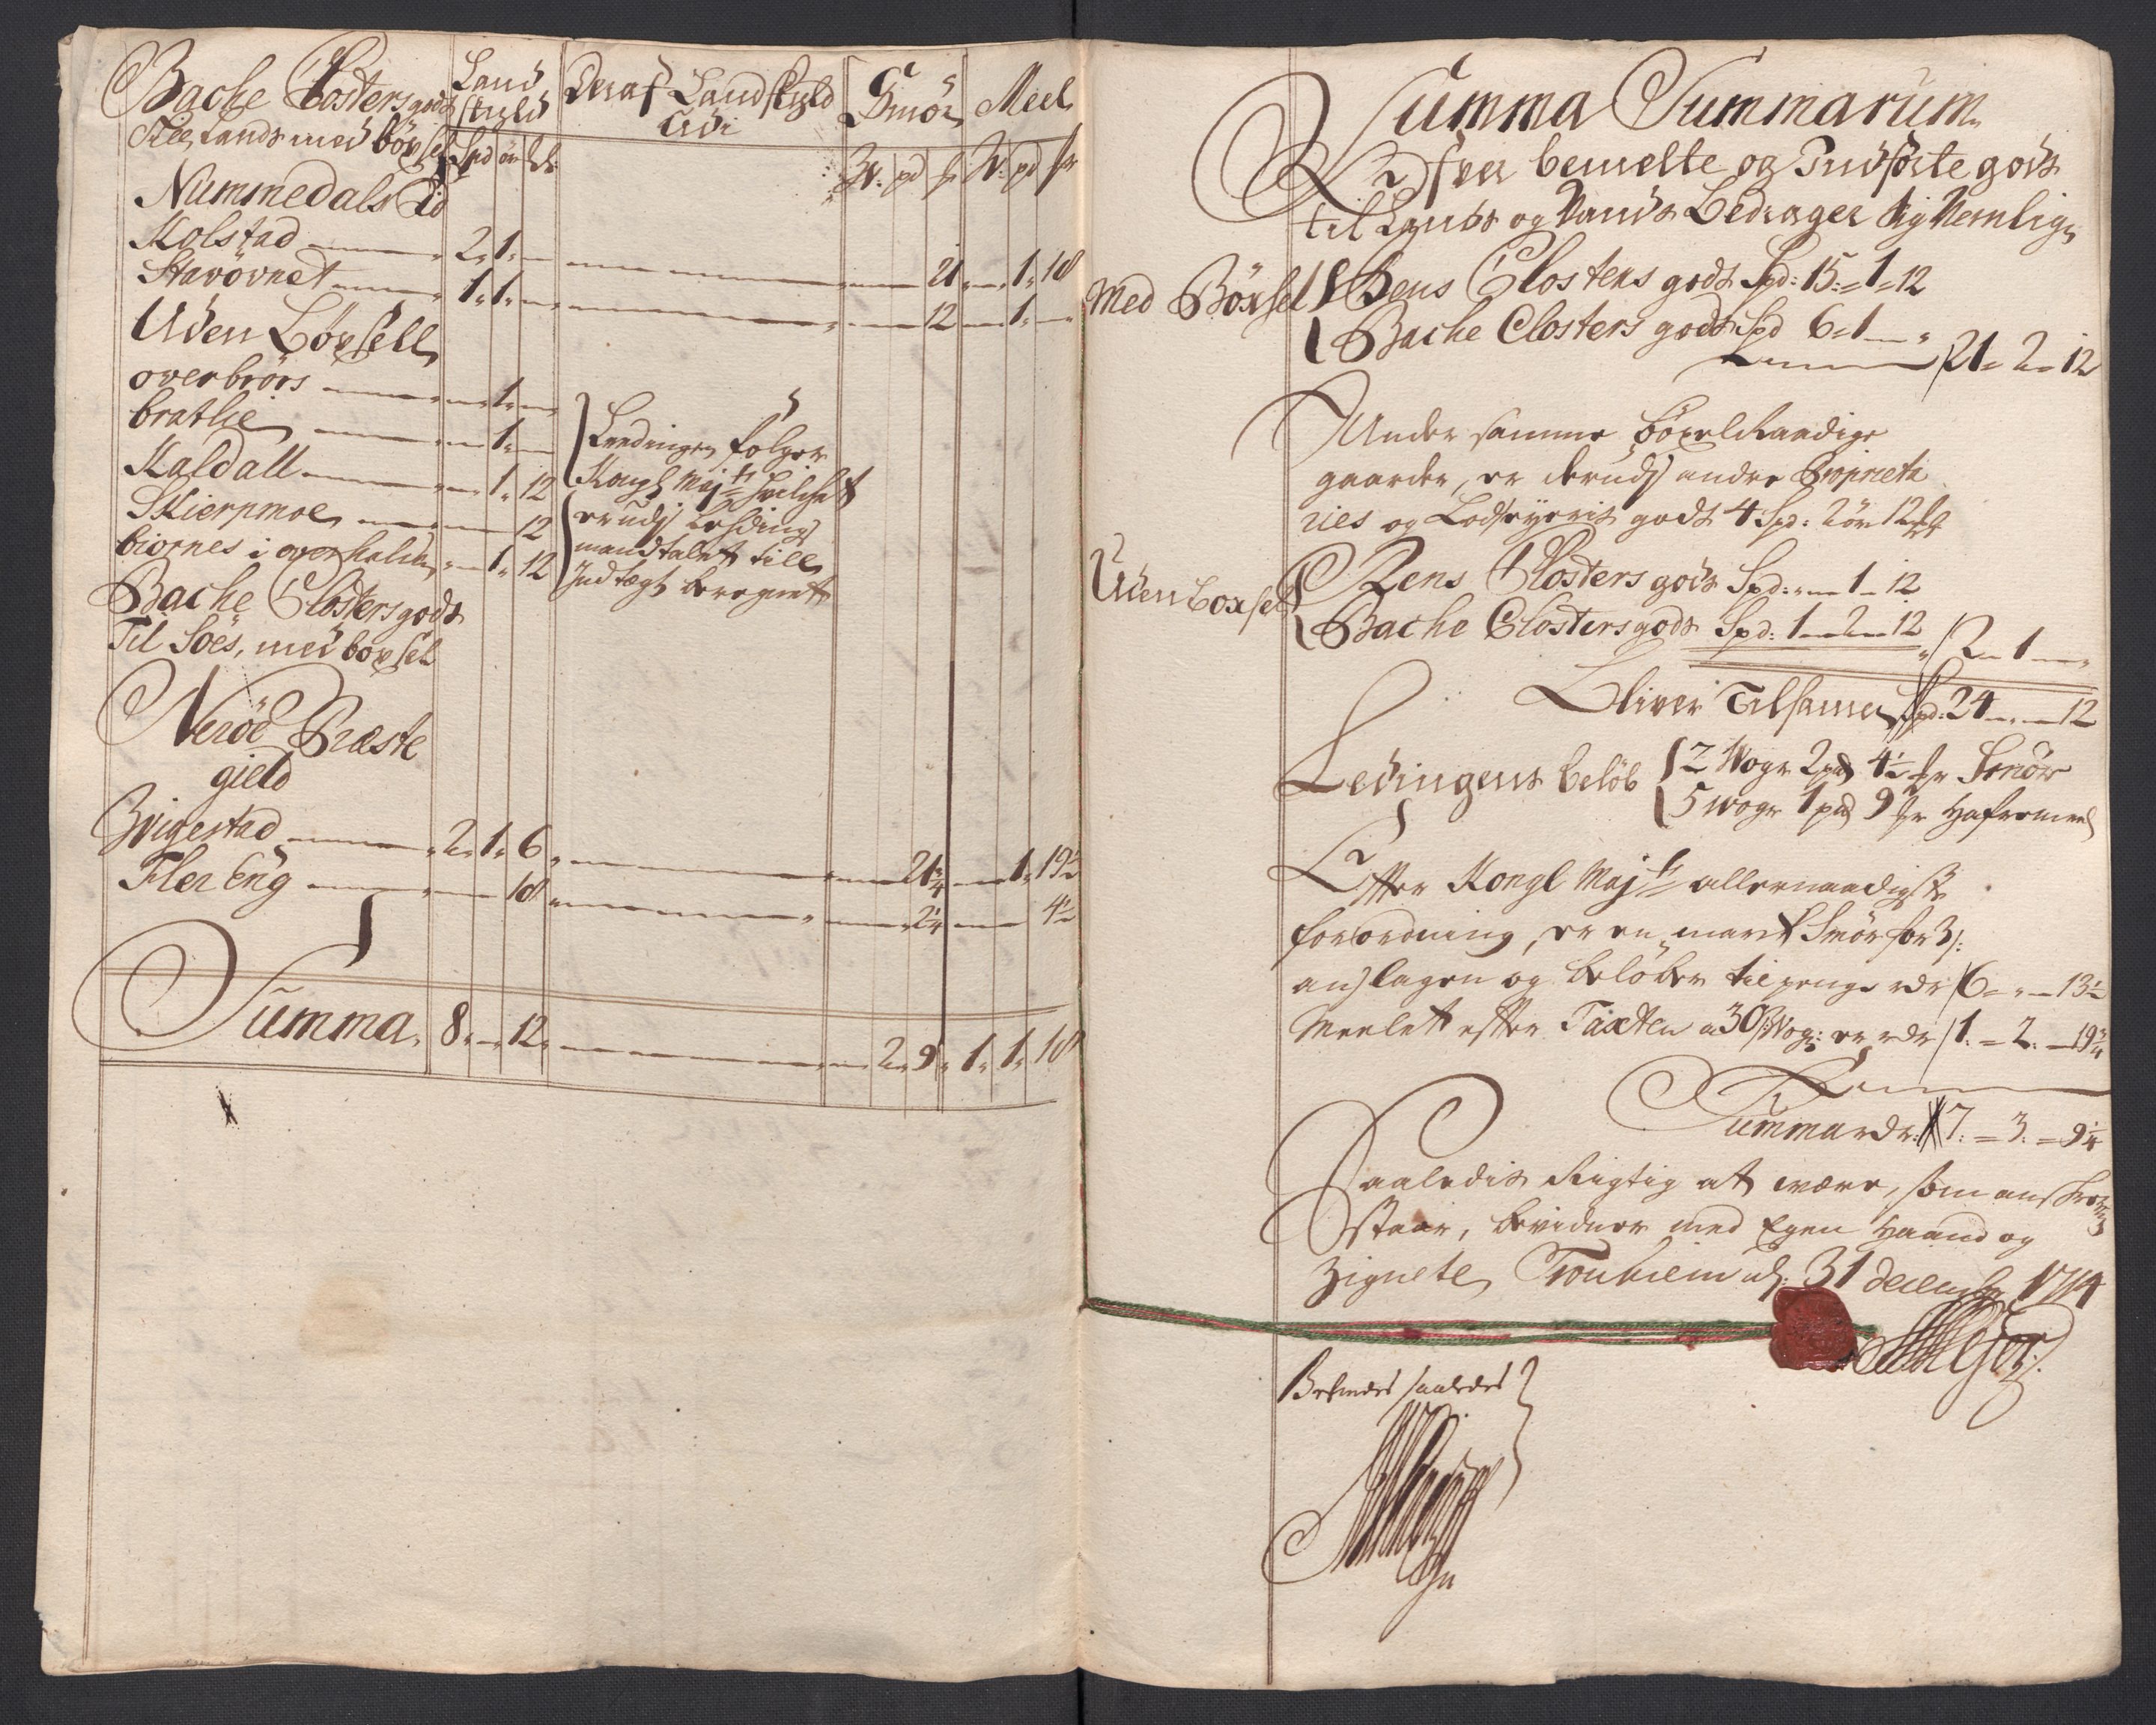 Bache Closters gods
Till Lands med böxsel
Land
skyld
Spd ör
Deraf Landskyld
Smör
W: pd
Meel
W: pd
Nummedals
Kolstad 2 " 1 " 21 " 1 " 18
Stavövnet 1 " 1 " 12 " 1 "
Uden Böxsell
overbrörs 1 "
brathe 1 "
Kaldall 1 " 12
Skierpmoe 12
biornes i overhalden 1 " 12
Leedingen følger
Kongl Maj:ts
er udj Lehdings
mandtalet till
Indtægt beregnett
Bache Closters gods
Til Söes, med böxsel
Neröe Præste
gield
Zvigestad 2 " 1 " 6 " 21 3/4 " 1 " 19 1/2
Fler Eng 18 " 2 1/4 " 4 1/2
Summa 8 " 12 " 2 " 9 " 1 " 1 " 18
Summa Summarum
bemelte og Indførte gods
til Lands og Vands Bedrager sig Nemlig
Med Böxsel
Rens Closters gods Spd: 15 = 1 = 12
Bache Closters gods Spd 6 = 1 "
21 = 2 = 12
Under samme böxelRaadige
gaarder, er derudj andre Proprieta
ries og Lodseyeris gods 4 Spd: 2 ör 12
Uden boxsel
Rens Closters gods Spd: " 1 - 12
Bache Closters gods Spd: 1 - 2 - 12
2 - 1 - "
Bliver Tilsamen Spd: 24 - " - 12
Ledingens beløb
2 Wogr 2 pd 4 1/2 Smör
5 Wogr 1 pd 9 Hafremeel
Efter Kongl Maj:ts allernaadigste
forordning, er en mark Smör for 3 s:
anslagen og beløber til penge rdr 6 = " - 13 1/2
Meelet efter Taxten a 30 s Wog: er rdr 1. = 2. - 19 3/4
Summa rdr: 7. = 3. = 9 1/4
Saaledis Rigtig at være, som
staar, bevidner med Egen Haand og
Zignete Tronhiem 31 December 1714
Befindes saaledes